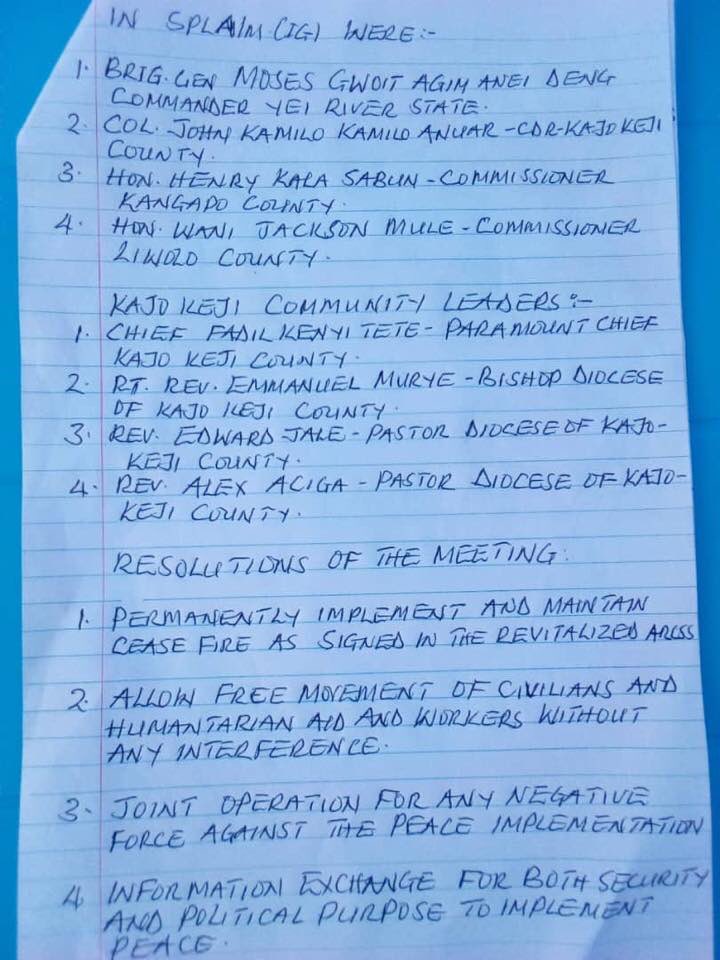 IN SPLA/M (IG) WERE:-
1. BRIG. GEN MOSES GWOIT AGIM ANEI DENG
COMMANDER YEI RIVER STATE.
2. COL. JOHN KAMILO KAMILO ANYAR - CDR-KAJO KEJI
COUNTY.
3. HON. HENRY KALA SABUN - COMMISSIONER
KANGAPO COUNTY.
4. HON. WANI JACKSON MULE - COMMISSIONER
LIWOLO COUNTY.
KAJO KEJI COMMUNITY LEADERS:-
1. CHIEF FADIL KENYI TETE - PARAMOUNT CHIEF
KAJO KEJI COUNTY.
2. RT. REV. EMMANUEL MURYE - BISHOP DIOCESE
OF KAJO KEJI COUNTY.
3. REV. EDWARD JALE - PASTOR DIOCESE OF KAJO-
KEJI COUNTY.
4. REV. ALEX ACIGA - PASTOR DIOCESE OF KAJO-
KEJI COUNTY.
RESOLUTIONS OF THE MEETING:
1. PERMANENTLY IMPLEMENT AND MAINTAIN
CEASE FIRE AS SIGNED IN THE REVITALIZED ARCSS
2. ALLOW FREE MOVEMENT OF CIVILIANS AND
HUMANTARIAN AID AND WORKERS WITHOUT
ANY INTERFERENCE.
3. JOINT OPERATION FOR ANY NEGATIVE
FORCE AGAINST THE PEACE IMPLEMENTATION
4 INFORMATION EXCHANGE FOR BOTH SECURITY
AND POLITICAL PURPOSE TO IMPLEMENT
PEACE.